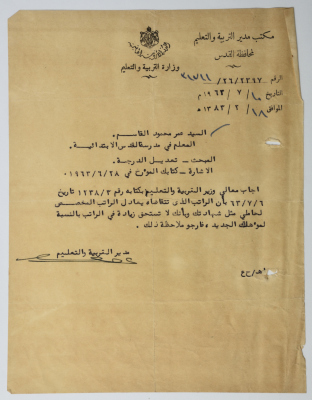 مكتب مدير التربية والتعليم
لمحافظة القدس
وزارة التربية والتعليم
الرقم ٢٦/٢٣٩٧/
التاريخ ١٠ / ٧ / ١٩٦٣ م
الموافق ١٨ / ٢ / ١٣٨٣ هـ
السيد عمر محمود القاسم
المعلم في مدرسة القدس الابتدائية .
المبحث - تعديل الدرجة .
الاشارة - كتابك المؤرخ في ١٩٦٣/٦/٢٨ ٠
اجاب معالي وزير التربية والتعليم بكتابه رقم ١٢٣٨/٣ تاريخ
٦٣/٧/٦ بأن الراتب الذي تتقاضاه يعادل الراتب المخصص
لحاملي مثل شهادتك وبأنك لا تستحق زيادة في الراتب بالنسبة
لمؤهلك الجديد ، فارجو ملاحظة ذلك .
مدير التربية والتعليم